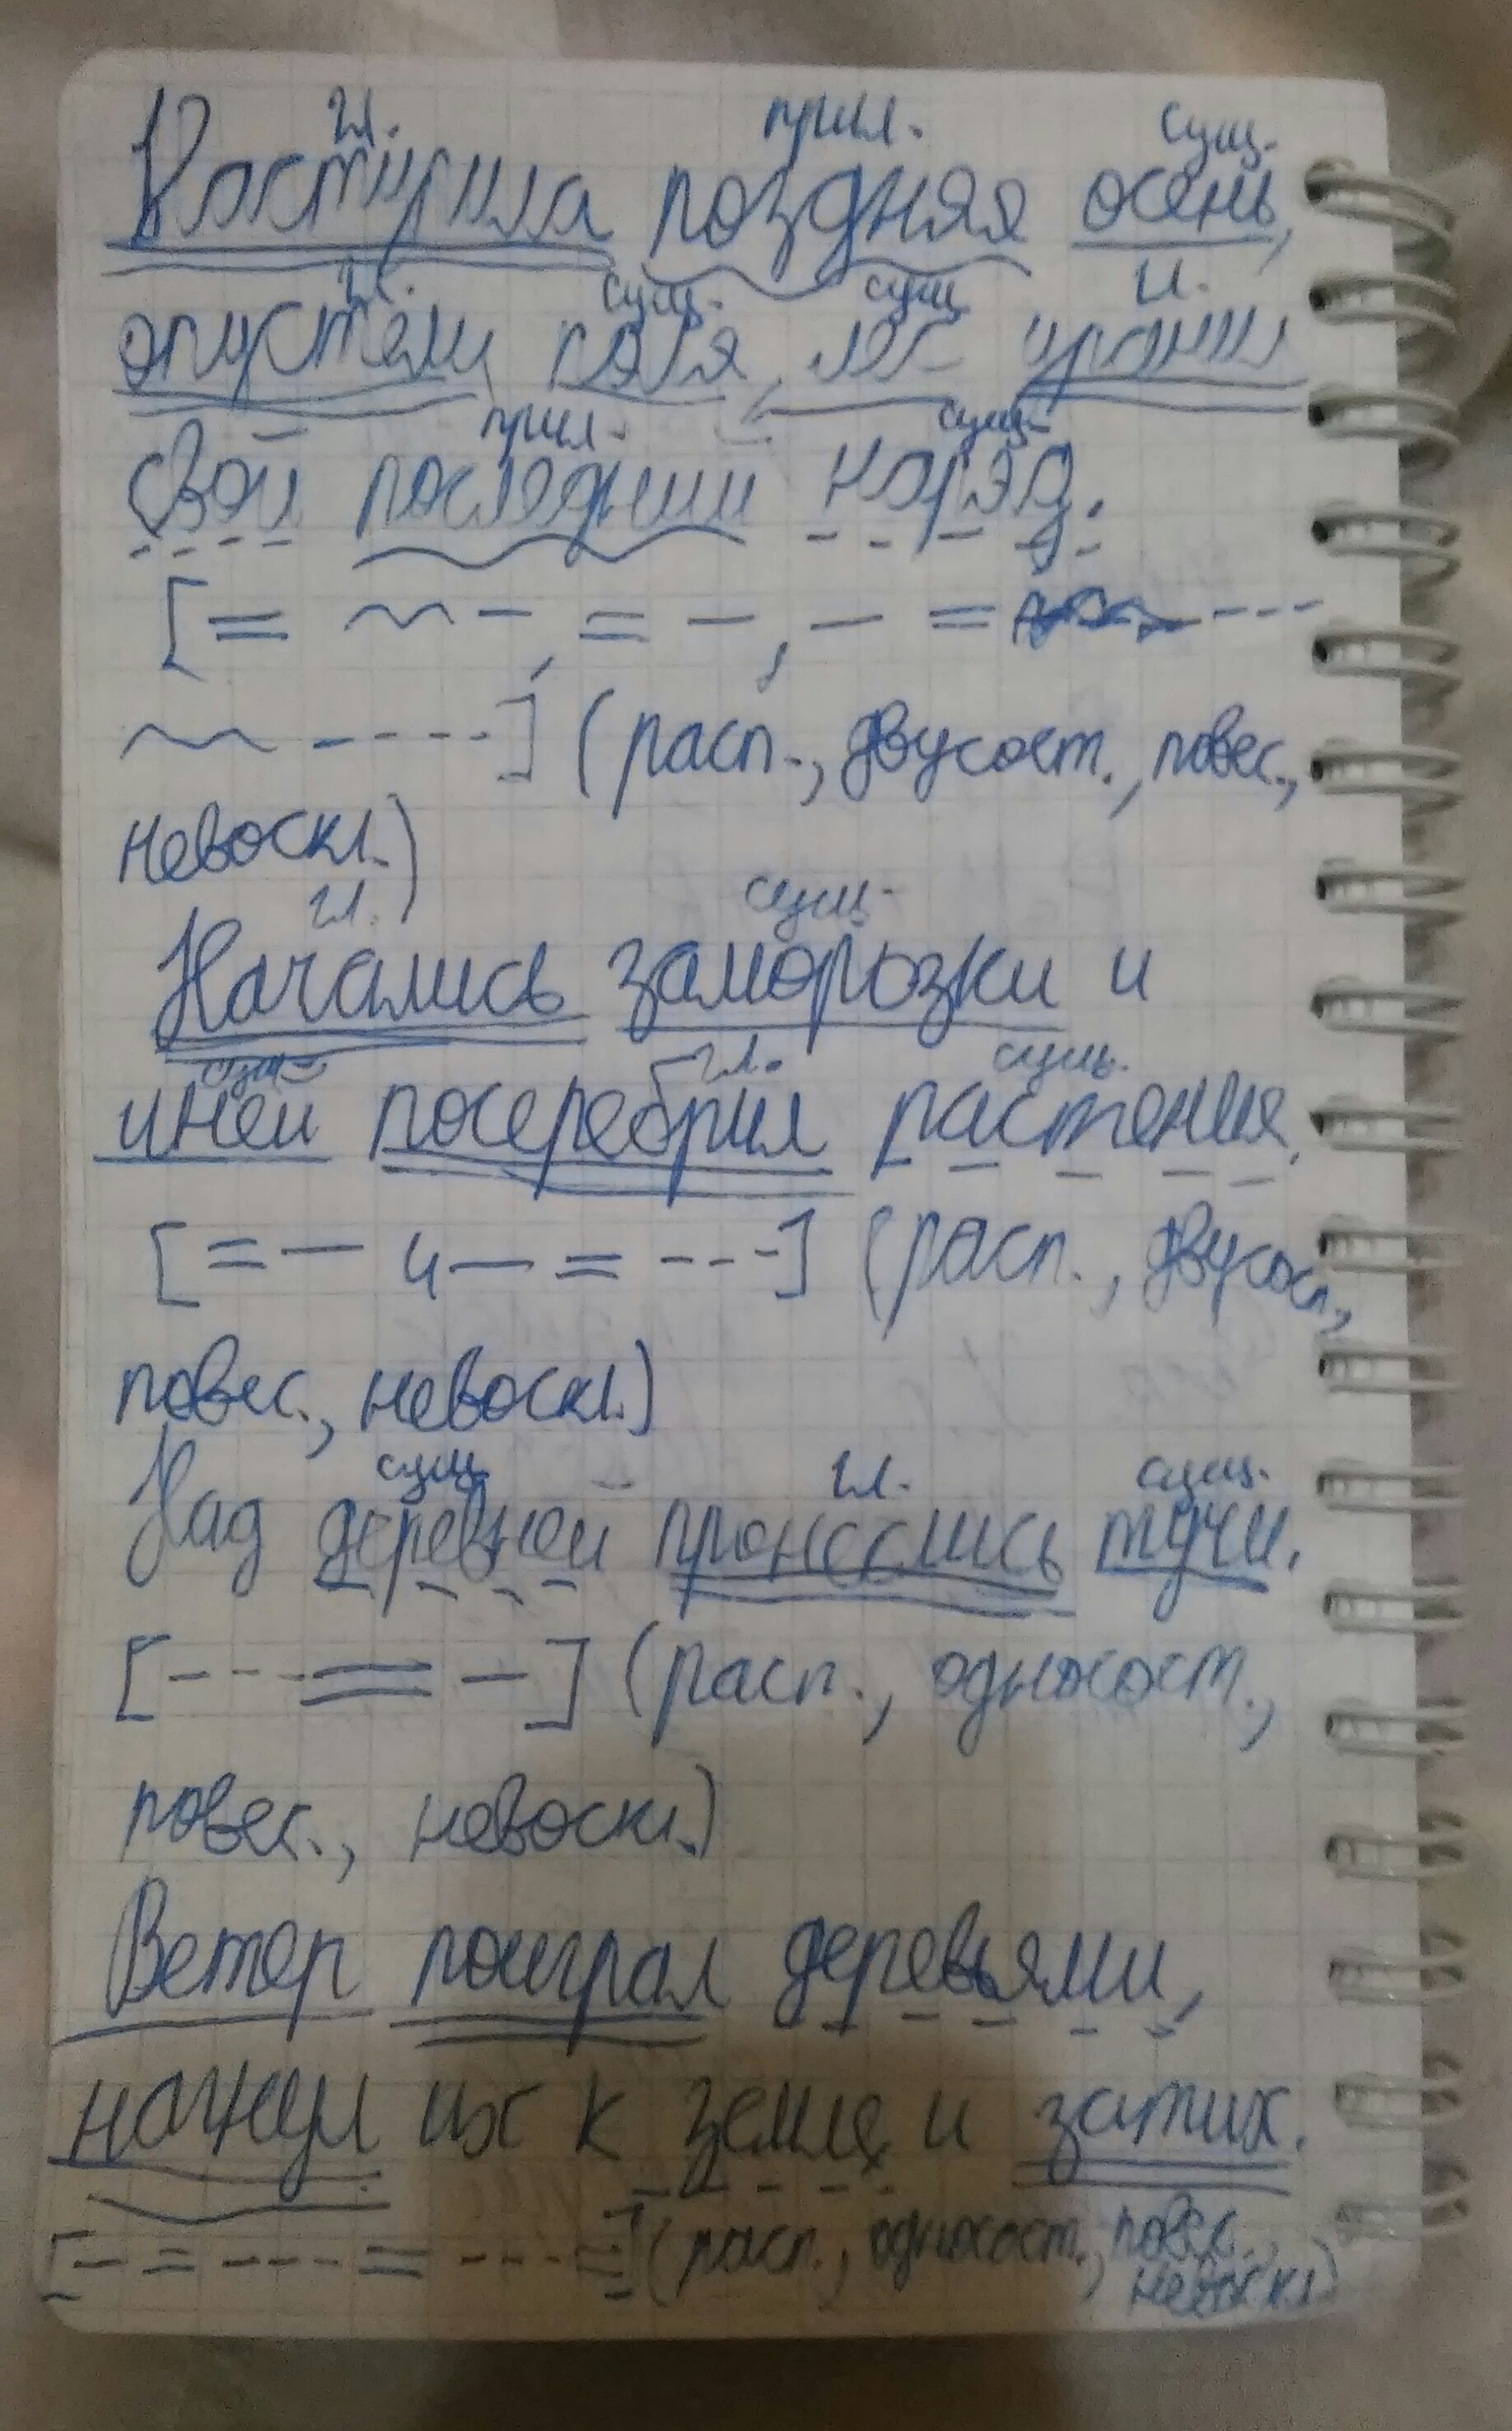 гл. прил. сущ.
Наступила поздняя осень,
гл. сущ. сущ гл.
опустели поля, лес уронил
прил. сущ.
свой последний наряд.
[= ~ -, = -, - = ----
~ ----] (расп., двусост., повес.,
невоскл.)
гл. сущ.
Начались заморозки и
сущ гл. сущ.
иней посеребрил растения.
[= — и — = ---] (расп., двусос.,
повес., невоскл.)
сущ гл. сущ.
Над деревней пронеслись тучи.
[--- = —] (расп., односост.,
повес., невоскл.)
Ветер поиграл деревьями,
нагнул их к земле и затих.
[- = --- = --- =] (расп., односост., повес.,
невоскл.)